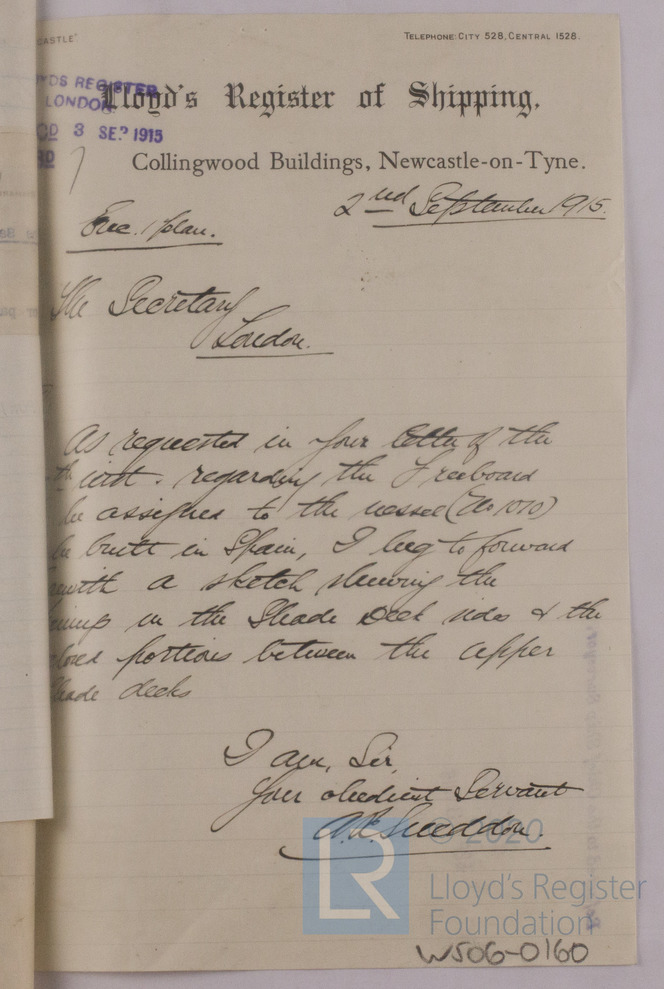 CASTLE".
TELEPHONE: CITY 528, CENTRAL 1528.
YDS REGISTER
LONDON
3 SEP 1915
Lloyd's Register of Shipping,
Collingwood Buildings, Newcastle-on-Tyne.
2nd September 1915.
Enc. 1 plan.
The Secretary
London.
As requested in your letter of the
th inst. regarding the Freeboard
be assigned to the vessel (No 1010)
be built in Spain, I beg to forward
ewith a sketch shewing the
in the Shade Deck sides & the
losed portions between the upper
Shade decks
I am, Sir,
Your obedient Servant
© 2020
LR
Lloyd's Register
Foundation
W506-0160